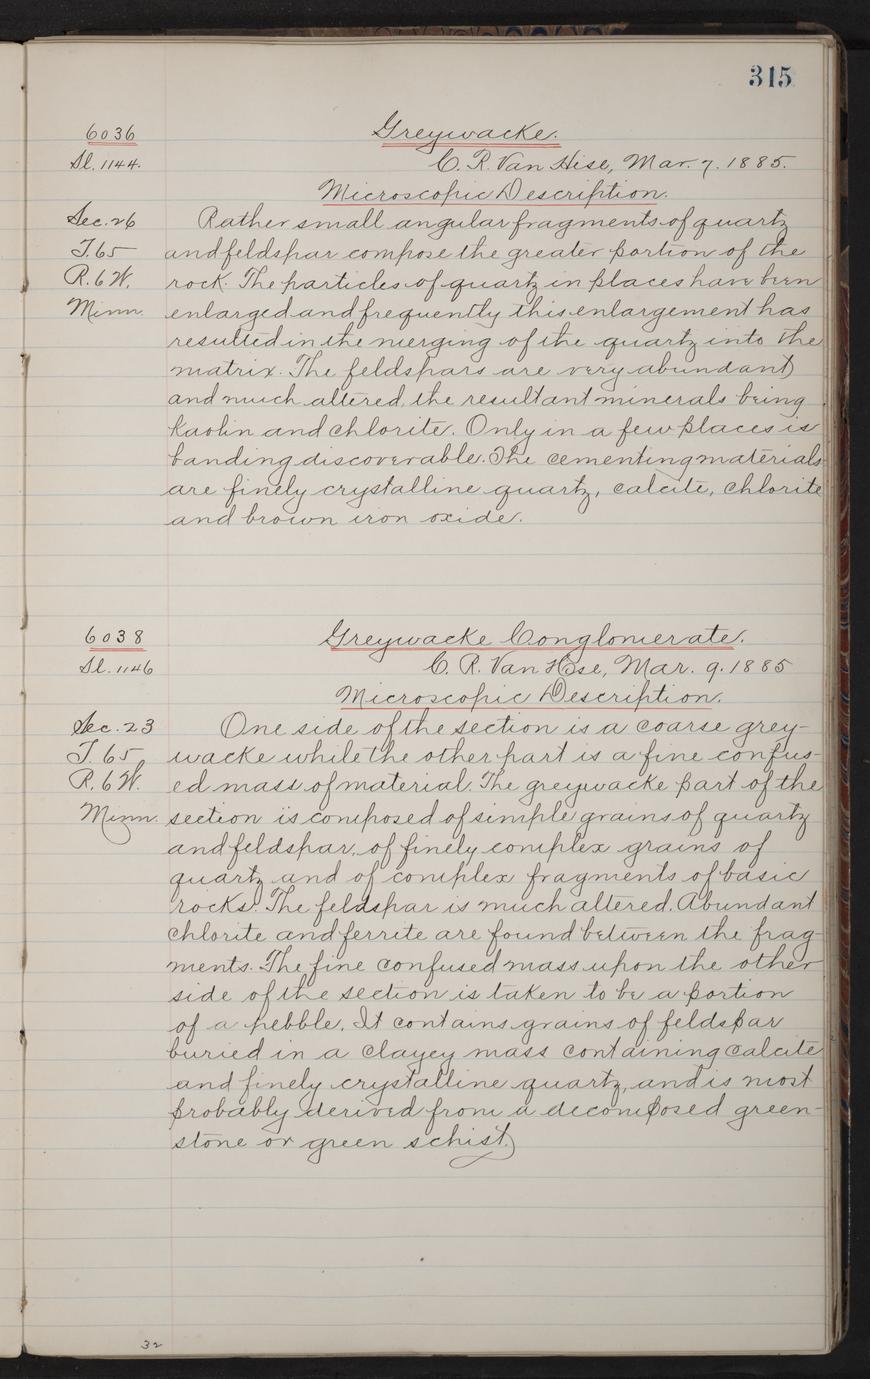 315
6036
Greywacke.
Sl. 1144.
C. R. Van Hise, Mar. 7. 1885.
Microscopic Description.
Sec. 26
T. 65
R. 6 W.
Minn.
Rather small angular fragments of quartz
and feldspar compose the greater portion of the
rock. The particles of quartz in places have been
enlarged and frequently this enlargement has
resulted in the merging of the quartz into the
matrix. The feldspars are very abundant
and much altered, the resultant minerals being
kaolin and chlorite. Only in a few places is
banding discoverable. The cementing materials
are finely crystalline quartz, calcite, chlorite
and brown iron oxide.
6038
Greywacke Conglomerate.
Sl. 1146
C. R. Van Hise, Mar. 9. 1885
Microscopic Description.
Sec. 23
T. 65
R. 6 W.
Minn.
One side of the section is a coarse grey-
wacke while the other part is a fine confus-
ed mass of material. The greywacke part of the
section is composed of simple grains of quartz
and feldspar, of finely complex grains of
quartz and of complex fragments of basic
rocks. The feldspar is much altered. Abundant
chlorite and ferrite are found between the frag-
ments. The fine confused mass upon the other
side of the section is taken to be a portion
of a pebble. It contains grains of feldspar
buried in a clayey mass containing calcite
and finely crystalline quartz, and is most
probably derived from a decomposed green-
stone or green schist.
32